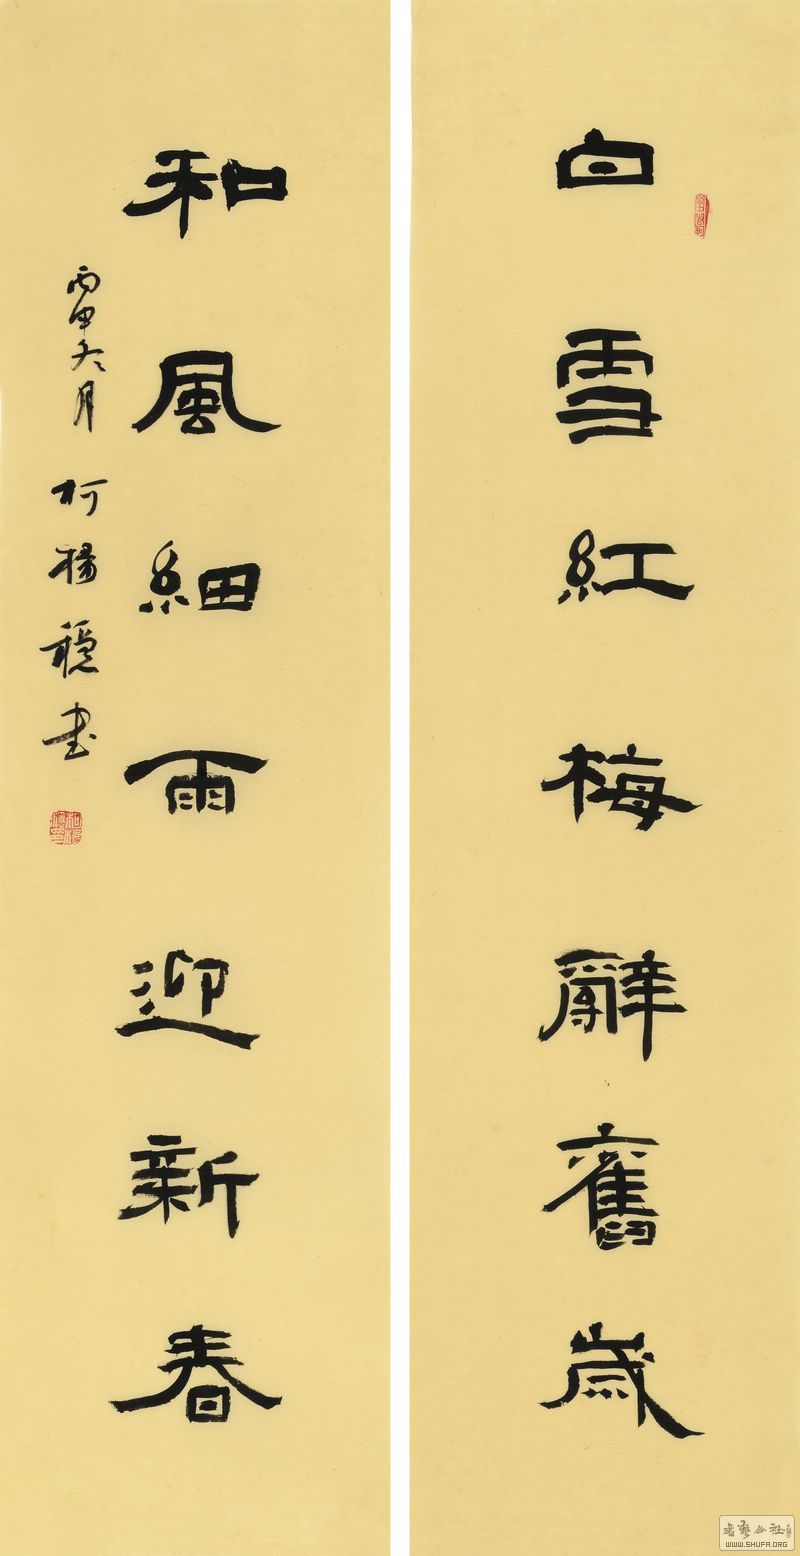 白雪紅梅辭舊歲
和風細雨迎新春
丙申冬月
柯楊穩書
書藝公社
WWW.SHUFA.ORG